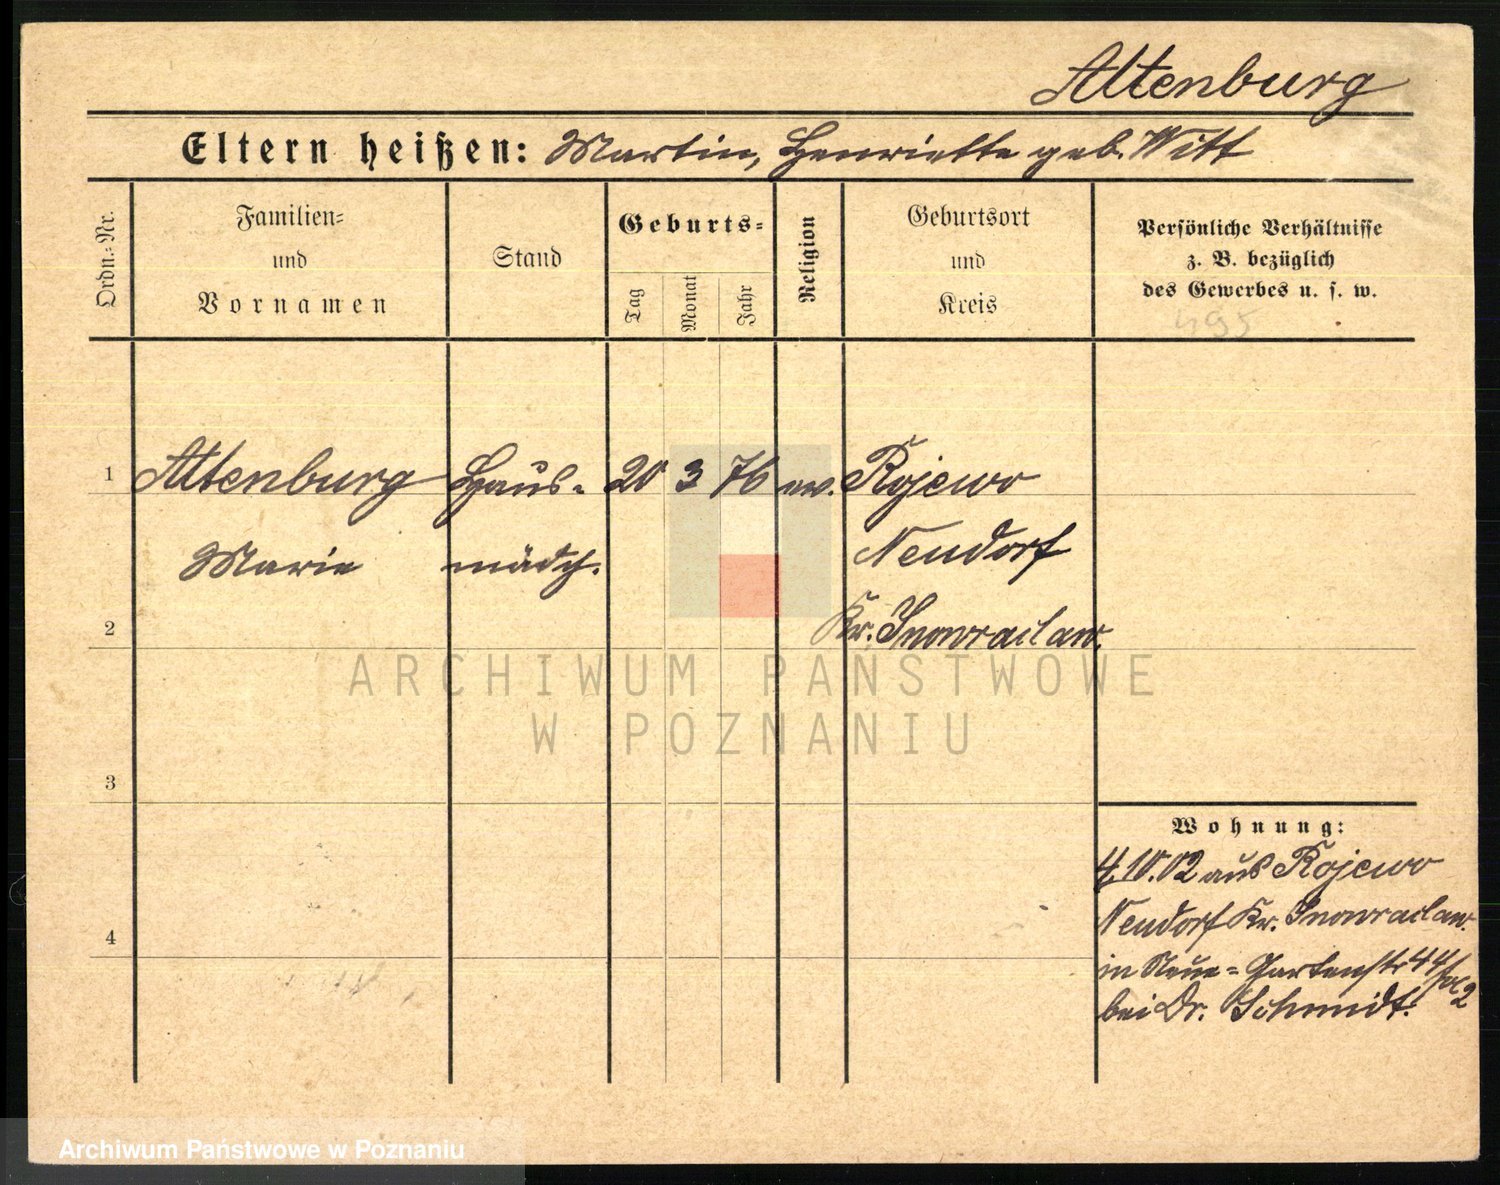 Altenburg
Eltern heißen: Martin, Henriette geb. Witt
Ordn.-Nr.
Familien=
und
Vornamen
Stand
Geburts=
Tag
Monat
Jahr
Religion
Geburtsort
und
Kreis
Persönliche Verhältnisse
z. B. bezüglich
des Gewerbes u. s. w.
495
1 Altenburg Haus= 20 3 76 ev. Rojewo
Marie mädch. Neudorf
2 Kr. Inowraclaw.
ARCHIWUM PAŃSTWOWE
W POZNANIU
3
Wohnung:
4.10.02 aus Rojewo
Neudorf Kr. Inowraclaw.
4
in Neue=Gartenstr 44
bei Dr. Schmidt.
Archiwum Państwowe w Poznaniu